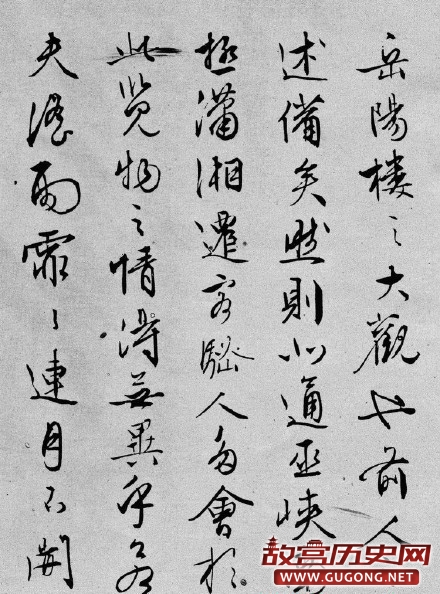 岳陽樓之大觀也前人
述備矣然則北通巫峽南
極瀟湘遷客騷人多會於
此覽物之情得無異乎若
夫淫雨霏〻連月不開
故宫历史网
WWW.GUGONG.NET